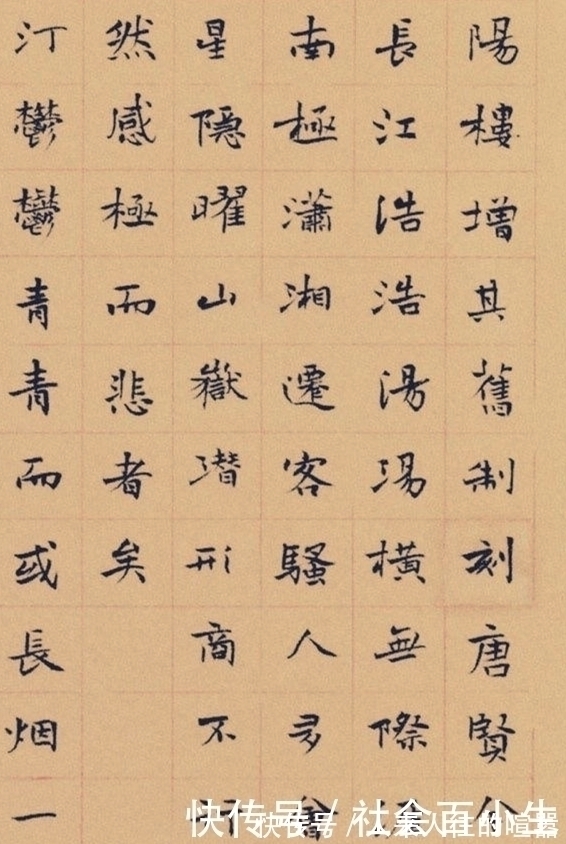 陽樓增其舊制刻唐賢今
長江浩浩湯湯橫無際
南極瀟湘遷客騷人多會
星隱曜山嶽潛形商不
然感極而悲者矣
汀鬱鬱青青而或長烟一
快传号 / 社会
快传号 / 人来人往的喧嚣